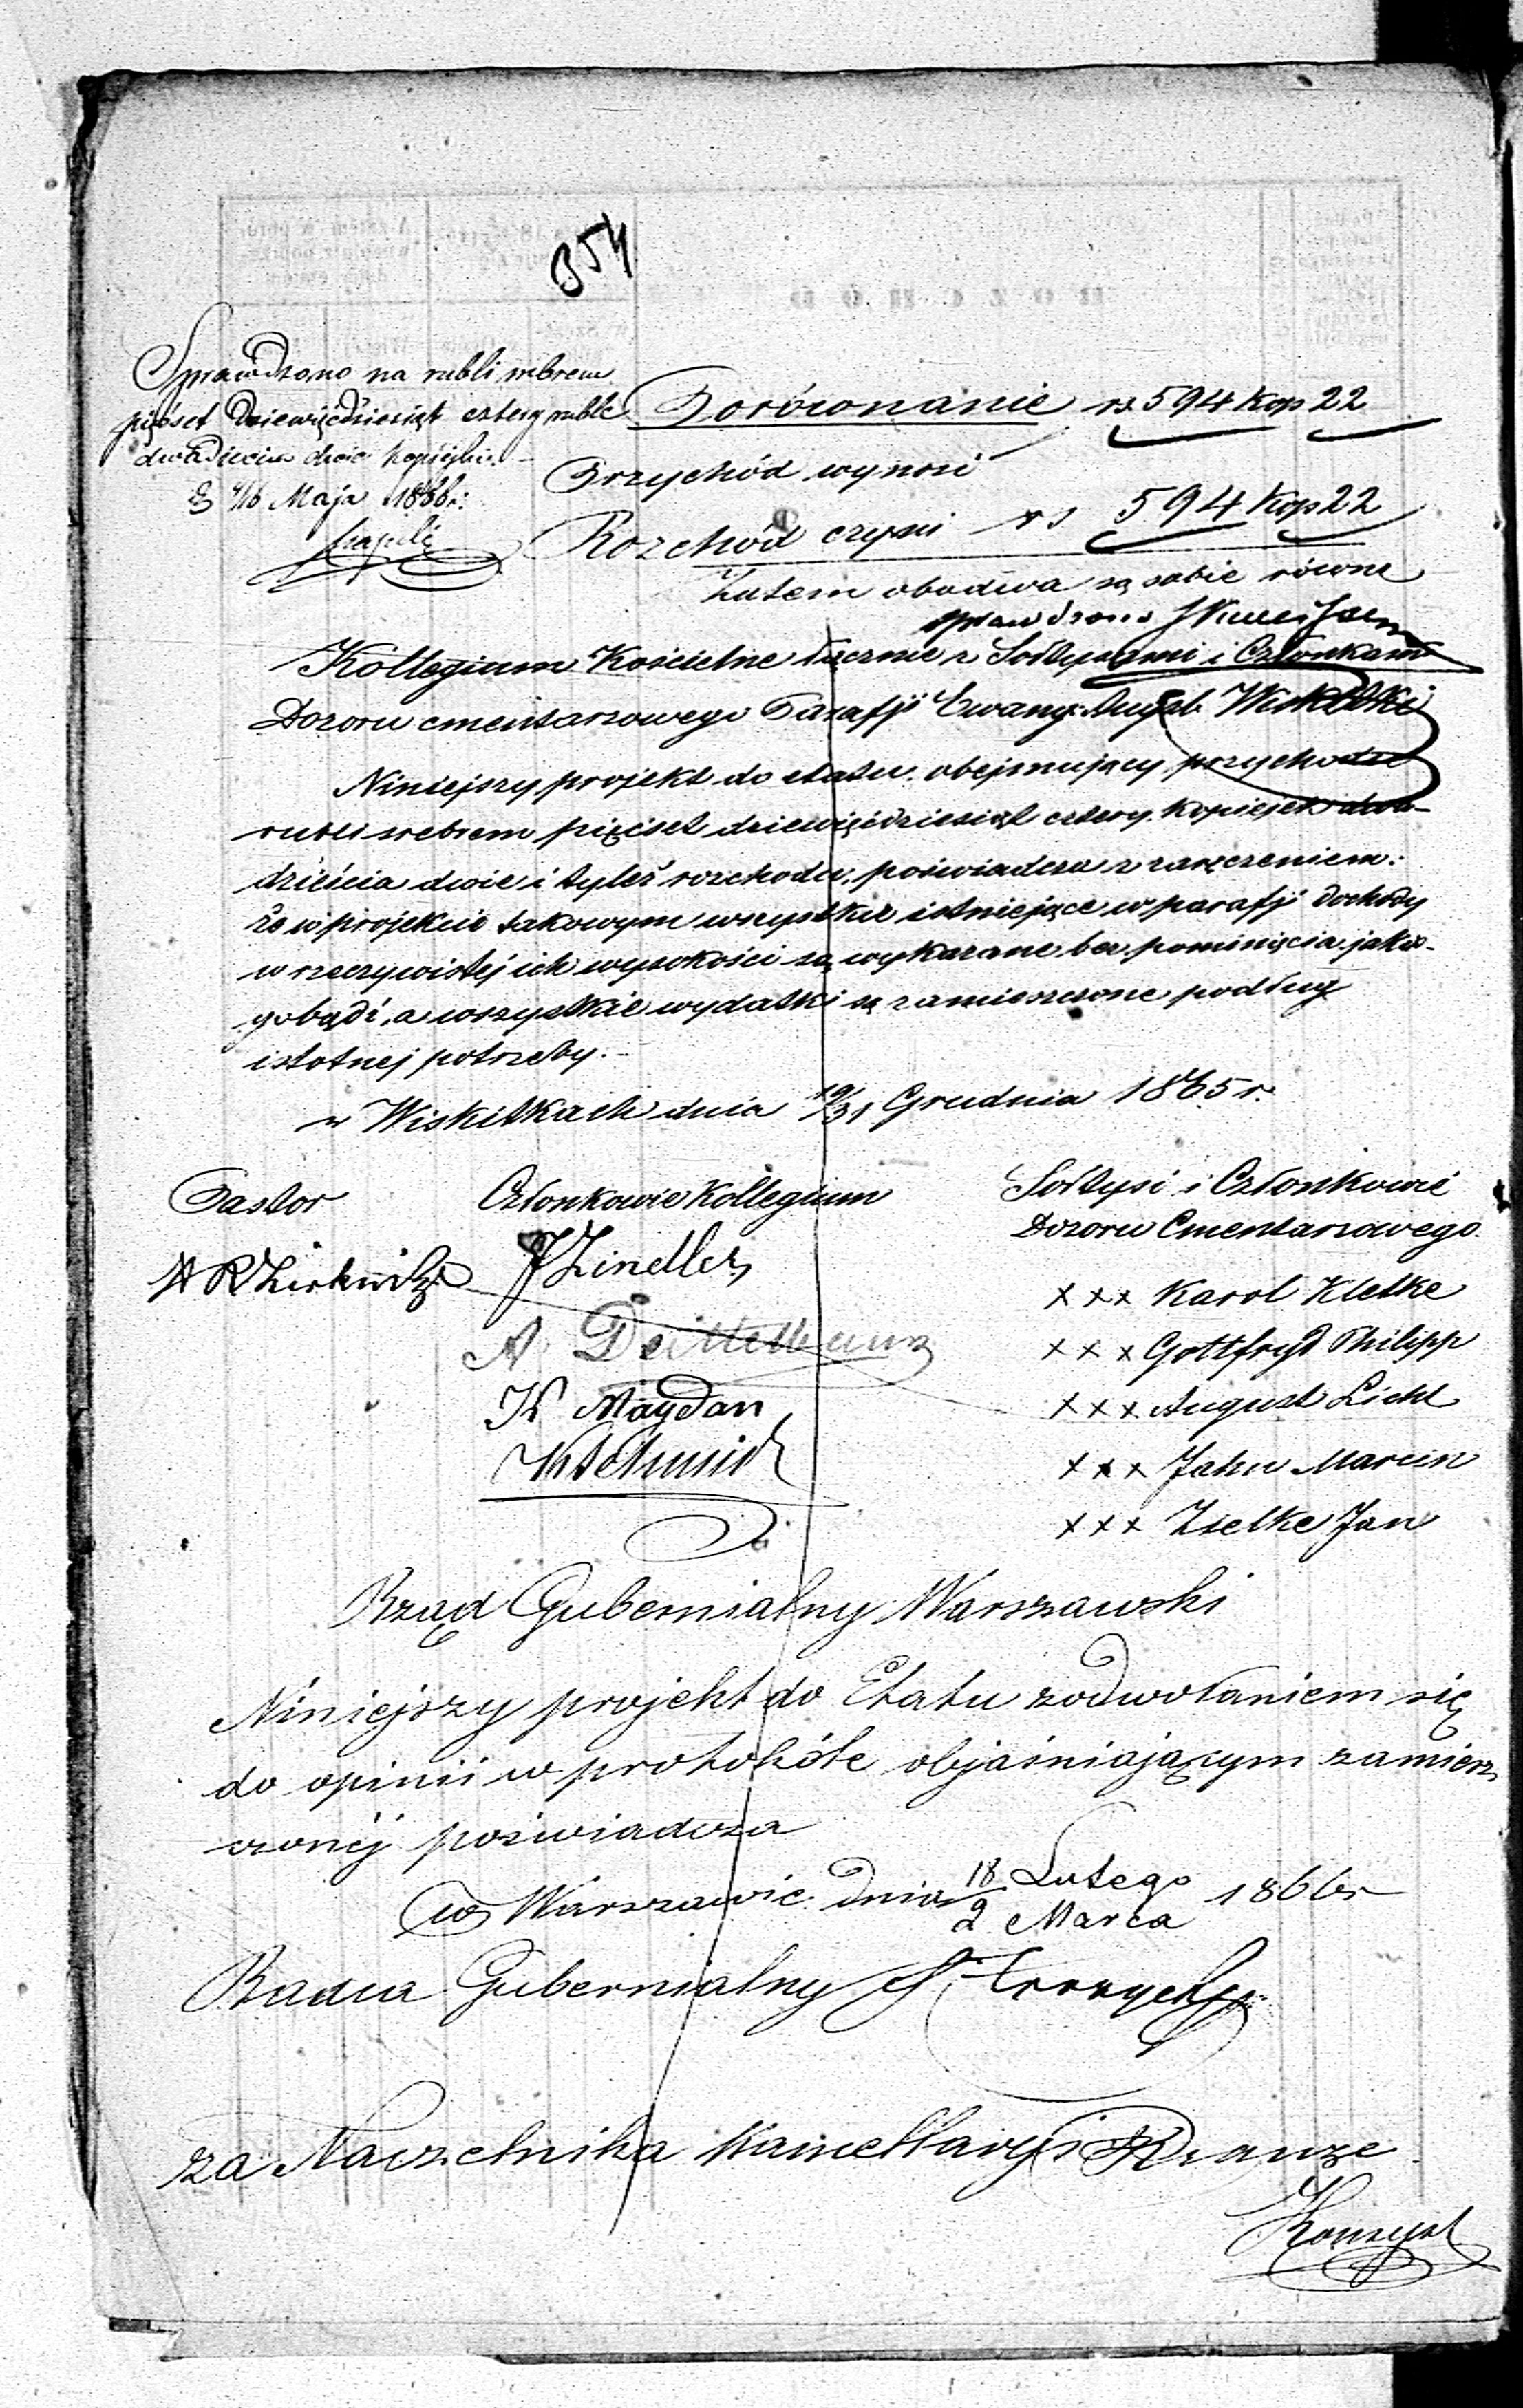 354
Sprawdzono na rubli srebrem
pięćset dziewięćdziesiąt cztery ruble
dwadzieścia dwie kopiejki.
4/16 Maja 1866 r:
Porównanie rs 594 Kop 22
Przychód wynosi
Rozchód czyni rs 594 Kop 22
Zatem obadwa są sobie równe
sprawdzono
Kollegium Kościelne łącznie z Sołtysami i Członkami
Dozoru cmentarzowego Parafji Ewang: Augsb. Wiskitki
Niniejszy projekt do etatu obejmujący przychodu
rubli srebrem pięćset dziewięćdziesiąt cztery kopiejek dwa-
dzieścia dwie i tyleż rozchodu, poświadcza z zaręczeniem:
że w projekcie takowym wszystkie istniejące w parafji dochody
w rzeczywistéj ich wysokości są wykazane bez pominięcia jakie-
gobądź, a wszystkie wydatki są zamieszczone podług
istotnej potrzeby.
w Wiskitkach dnia 19/31 Grudnia 1865 r.
Pastor Członkowie Kollegium Sołtysi i Członkowie
Dozoru Cmentarzowego.
J Zindler
xxx Karol Kletke
A
xxx Gottfryd Philipp
K Maydan
xxx August Licht
xxx Jahn Marcin
xxx Zielke Jan
Rząd Gubernialny Warszawski
Niniejszy projekt do Etatu z odwołaniem się
do opinii w protokóle objaśniającym zamiesz
czonéj poświadcza
w Warszawie dnia 18 Lutego / 2 Marca 1866 r
Radca Gubernialny
za Naczelnika Kancellaryi